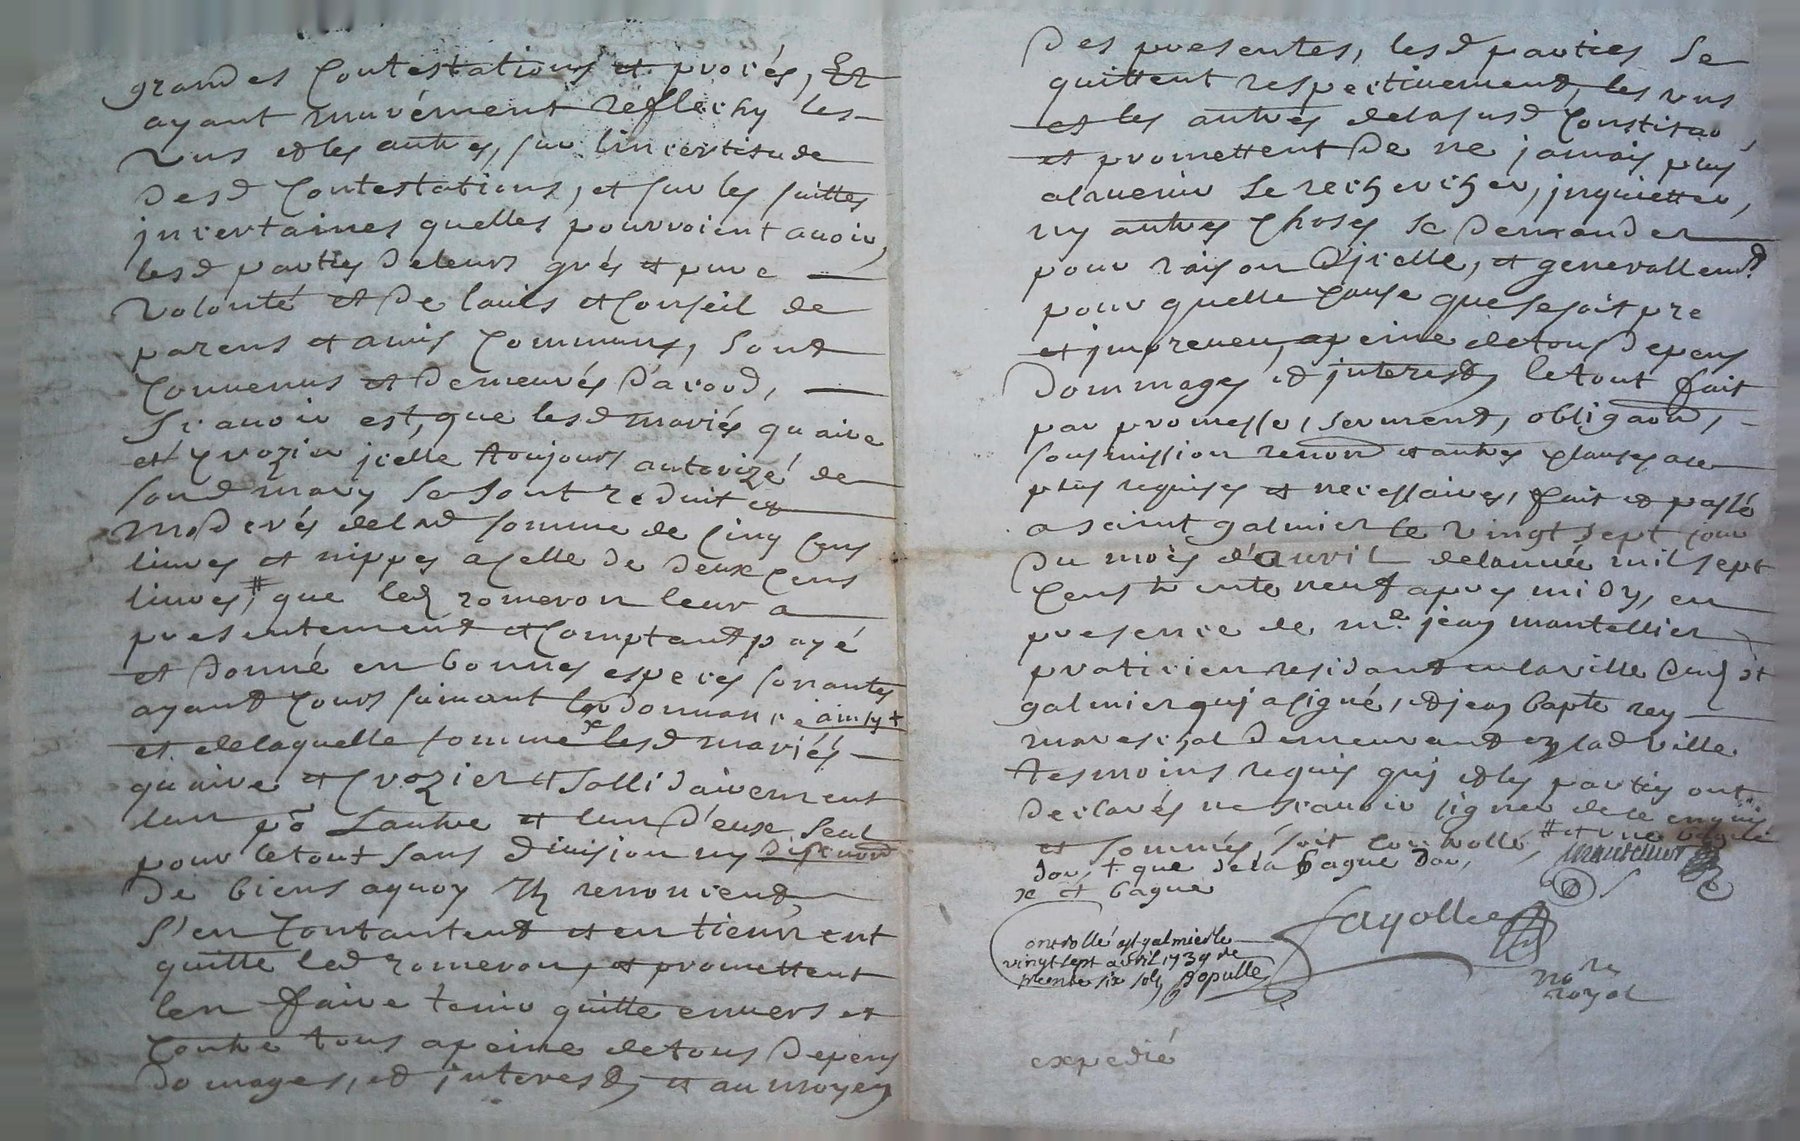 grandes Contestations et procés, Et
ayant murément reflechy les
Uns et les autres, sur lincertitude
Desd Contestations, et sur les suittes
jncertaines quelles pourroient avoir,
lesd parties de leurs grés et pure
Volonté et De lavis et Conseil de
parens et amis Communs, sont
Convenus et demeurés D'acord,
Scavoir est, que lesd mariés quaire
et Crozier jcelle toujours autorizé de
sond mary se sont reduit et
moderés de lad somme de Cinq Cens
livres et nippes a celle de Deux Cens
livres,# que led romeron leur a
presentement et Comptant payé
et Donné en bonnes especes sonantes
ayant Cours suivant lordonnance ainsy +
et de laquelle somme x lesd mariés
quaire et Crozier et sollidairement
lun po Lautre et lun D'eux seul
pour le tout sans division ny discution
De biens aquoy Ils renoncent,
S'en Contantent et en tiennent
quitte led romeron, et promettent
len faire tenir quitte envers et
Contre tous a peine de tous Depens
Domages, et jnterests et au moyen
Des presentes, lesd parties se
quittent respectivement, les uns
et les autres de la susd Constitaon,
et promettent De ne jamais plus
aladvenir se rechercher, jnquietter,
ny autres Choses se Demander
pour raison D'jcelle, et generallemt
pour quelle Cause que se soit pre
et jmpreveu, a peine de tous Depens
Dommages et jnterests, le tout fait
par promesse, serment, obligaon,
sousmission renon et autres Clauses a ce
plus requises et necessaires, fait et passé
a saint galmier le vingt sept jour
Du mois d'avril de lannée mil sept
Cens trente neuf apres midy, en
presence de me jean mantellier
praticien residant en la ville Dud st
galmier quj a signé, et jean bapte rey
mareschal Demeurant en lad ville
tesmoins requis quj et les parties ont
Declarés ne scavoir signer de ce enquis
et sommés, soit Controllé, # et une bague
Dor, + que de la bague Dor,
x et bague
Mantellier
fayolle
nore
royal
Controllé a st galmier le
vingt sept avril 1739 de
trente six sols Populle
expedié